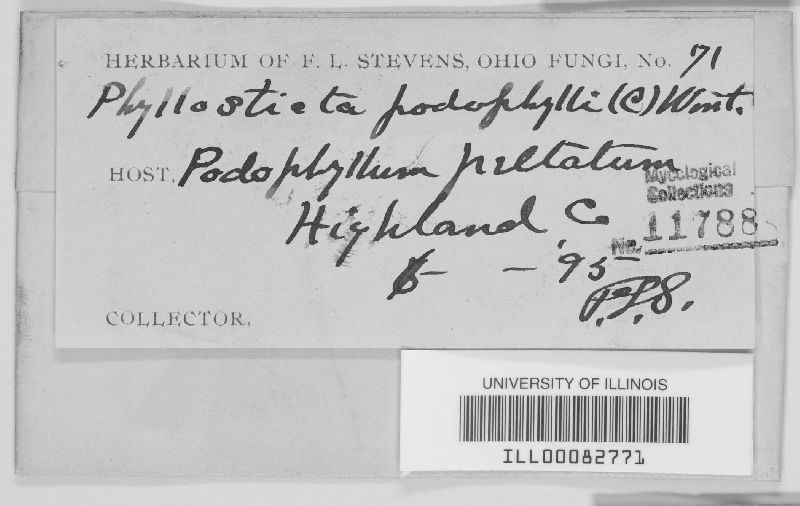 HERBARIUM OF F. L. STEVENS, OHIO FUNGI, No. 71
Phyllosticta podophylli (C) Wint.
HOST, Podophyllum peltatum
Mycological
Collections
No. 11788
Highland Co
- '95
F.L.S.
COLLECTOR,
UNIVERSITY OF ILLINOIS
ILL00082771